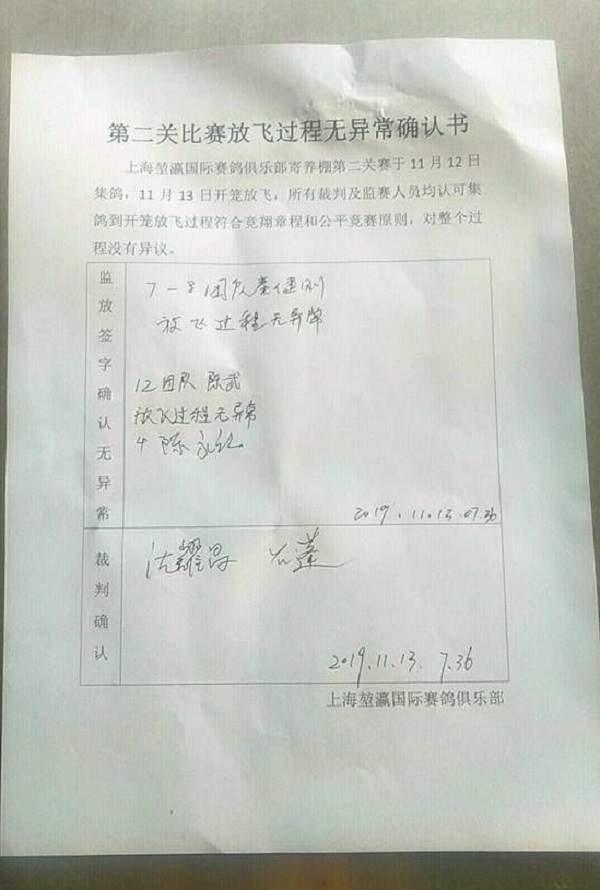 第二关比赛放飞过程无异常确认书
上海堃瀛国际赛鸽俱乐部寄养棚第二关赛于11月12日
集鸽，11月13日开笼放飞，所有裁判及监赛人员均认可集
鸽到开笼放飞过程符合竞翔章程和公平竞赛原则，对整个过
程没有异议。
监放签字确认无异常
7-8团队
放飞过程无异常
12团队 陈武
放飞过程无异常
4 陈
2019.11.13.07.36
裁判确认
沈耀昌
2019.11.13.7.36
上海堃瀛国际赛鸽俱乐部